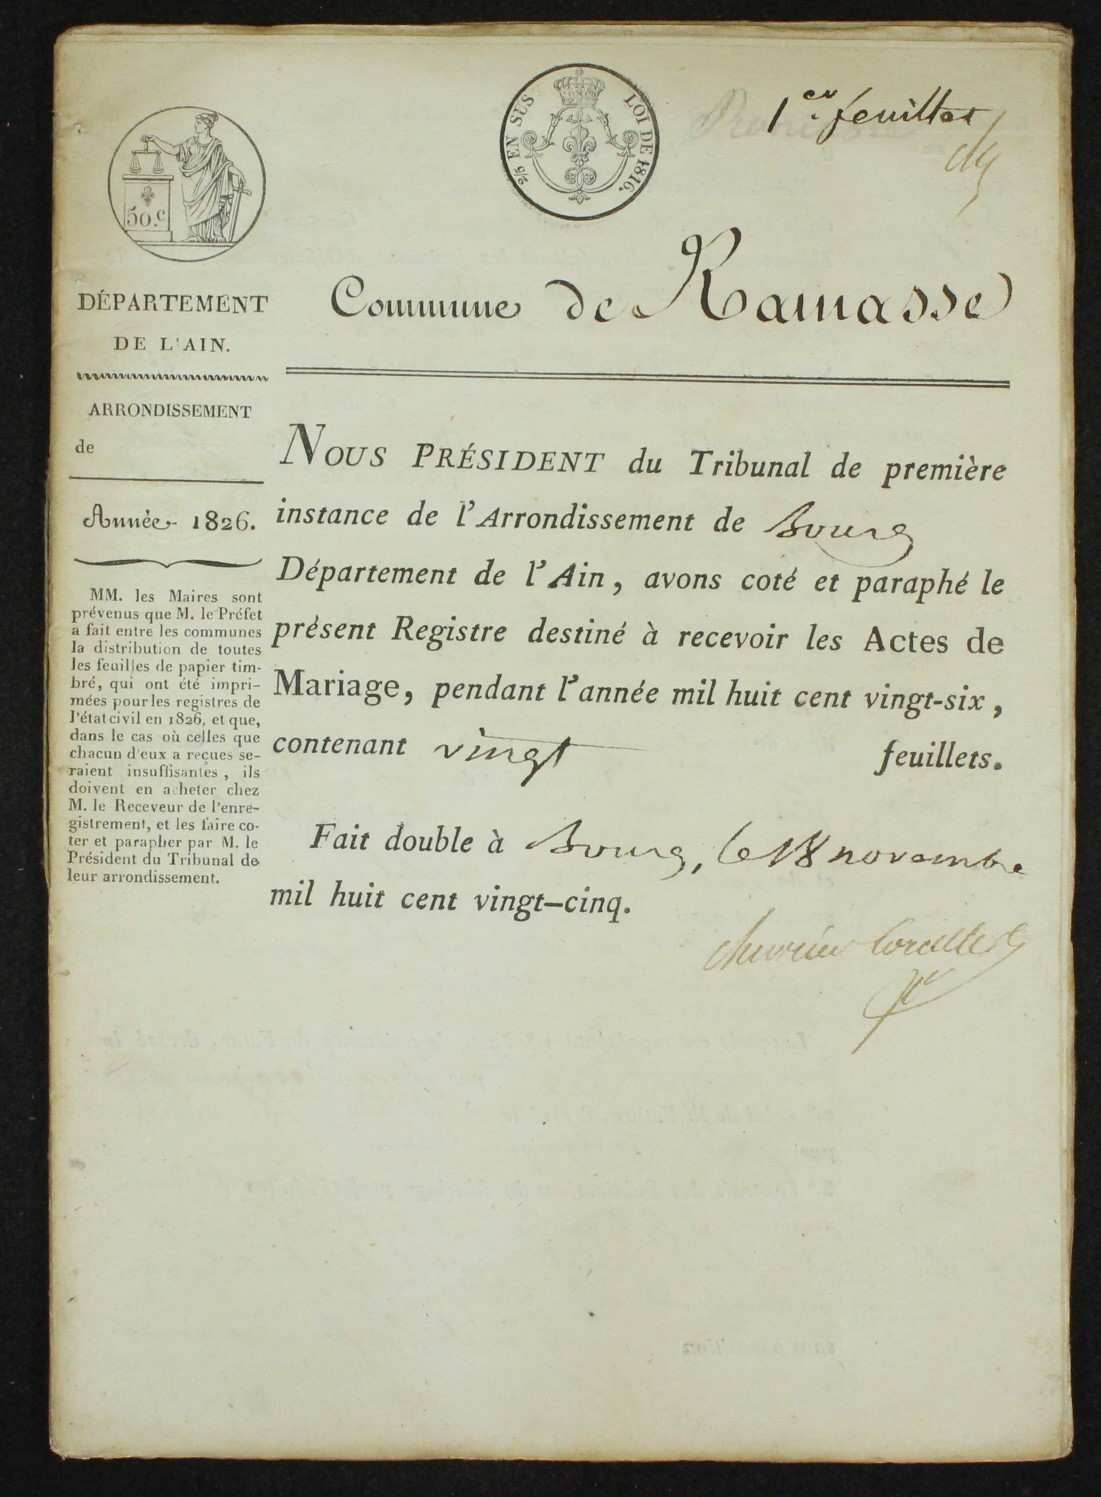 1er feuillet
2/5 EN SUS
LOI DE 1816.
50.c
DÉPARTEMENT
DE L'AIN.
Commune de Ramasse
ARRONDISSEMENT
de
Année 1826.
MM. les Maires sont
prévenus que M. le Préfet
a fait entre les communes
la distribution de toutes
les feuilles de papier tim-
bré, qui ont été impri-
mées pour les registres de
l'état civil en 1826, et que,
dans le cas où celles que
chacun d'eux a reçues se-
raient insuffisantes, ils
doivent en acheter chez
M. le Receveur de l'enre-
gistrement, et les faire co-
ter et parapher par M. le
Président du Tribunal de
leur arrondissement.
NOUS PRÉSIDENT du Tribunal de première
instance de l'Arrondissement de Bourg
Département de l'Ain, avons coté et paraphé le
présent Registre destiné à recevoir les Actes de
Mariage, pendant l'année mil huit cent vingt-six,
contenant vingt feuillets.
Fait double à Bourg, le 18 novembre
mil huit cent vingt-cinq.